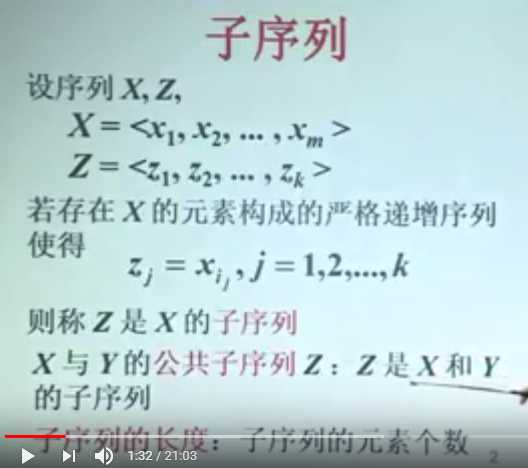 子序列
设序列 X, Z,
X = <x₁, x₂, ... , xₘ >
Z = <z₁, z₂, ... , zₖ >
若存在 X 的元素构成的严格递增序列
使得
zⱼ = x_{i_j}, j = 1,2,...,k
则称 Z 是 X 的子序列
X 与 Y 的公共子序列 Z：Z 是 X 和 Y
的子序列
子序列的长度：子序列的元素个数
1:32 / 21:03
2